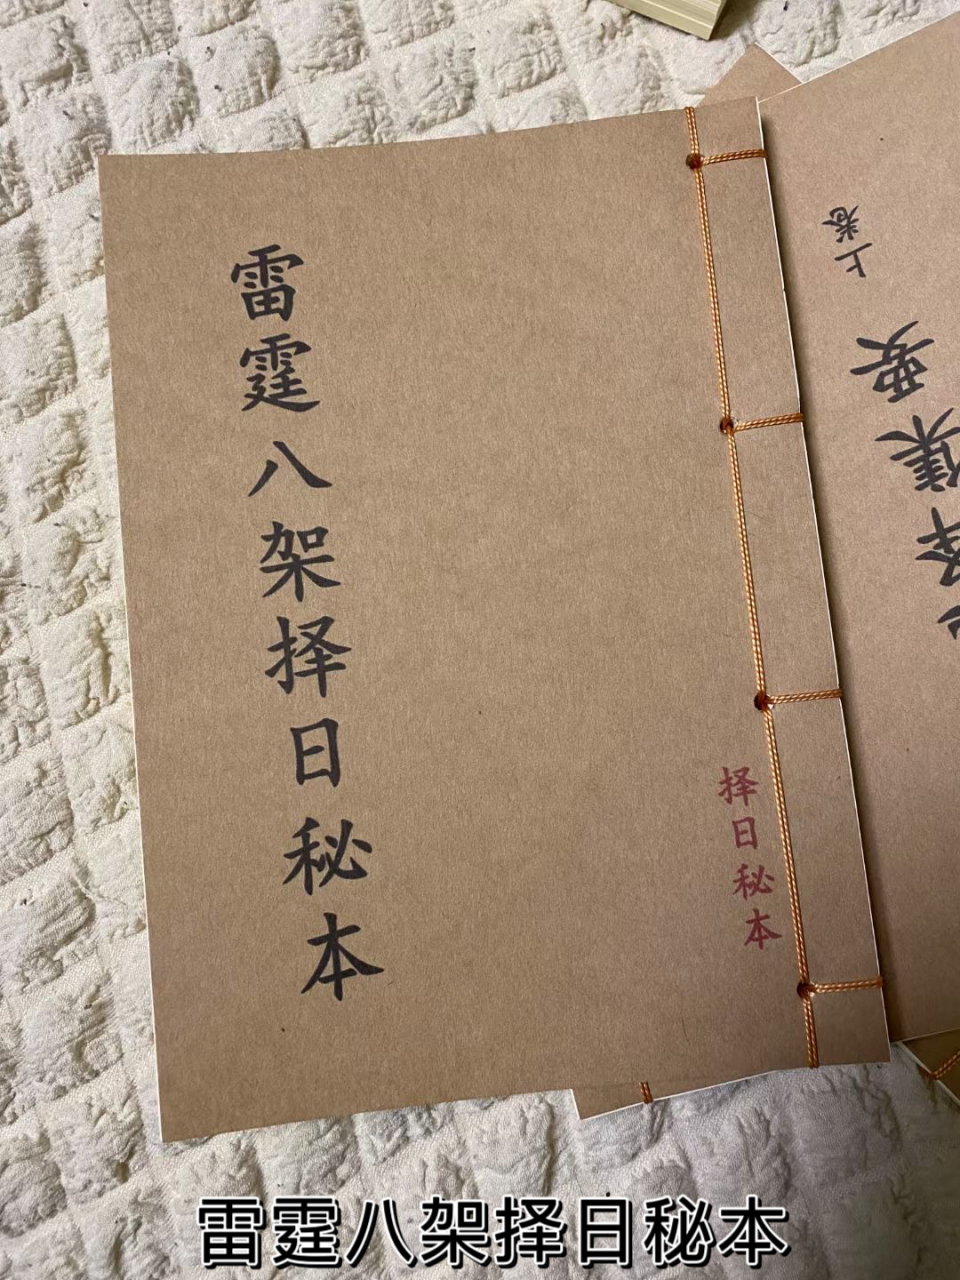 雷霆八架择日秘本
择日秘本
上卷
集要
雷霆八架择日秘本